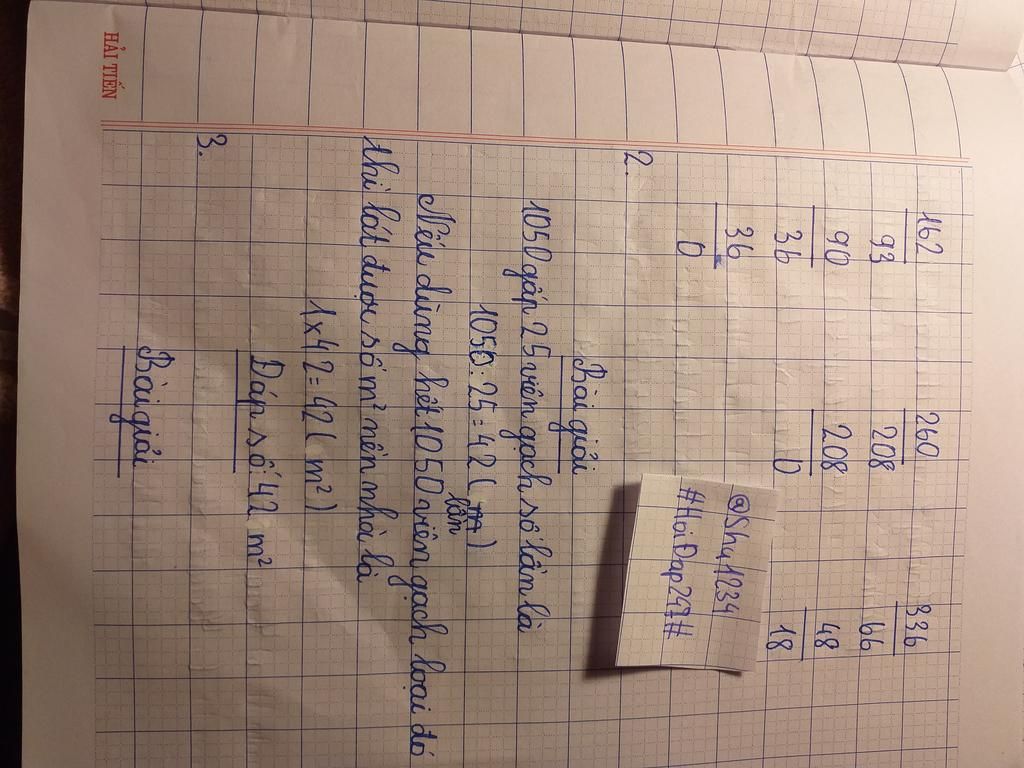 162 260 336
93 208 66
90 208 48
36 0 18
36
0
@Shu1234
#HoiDap247#
2.
Bài giải
1050 gấp 25 viên gạch số lần là
1050 : 25 = 42 (lần)
Nếu dùng hết 1050 viên gạch loại đó
thì lát được số m² nền nhà là
1 x 42 = 42 (m²)
Đáp số 42 m²
3.
Bài giải
HẢI TIẾN